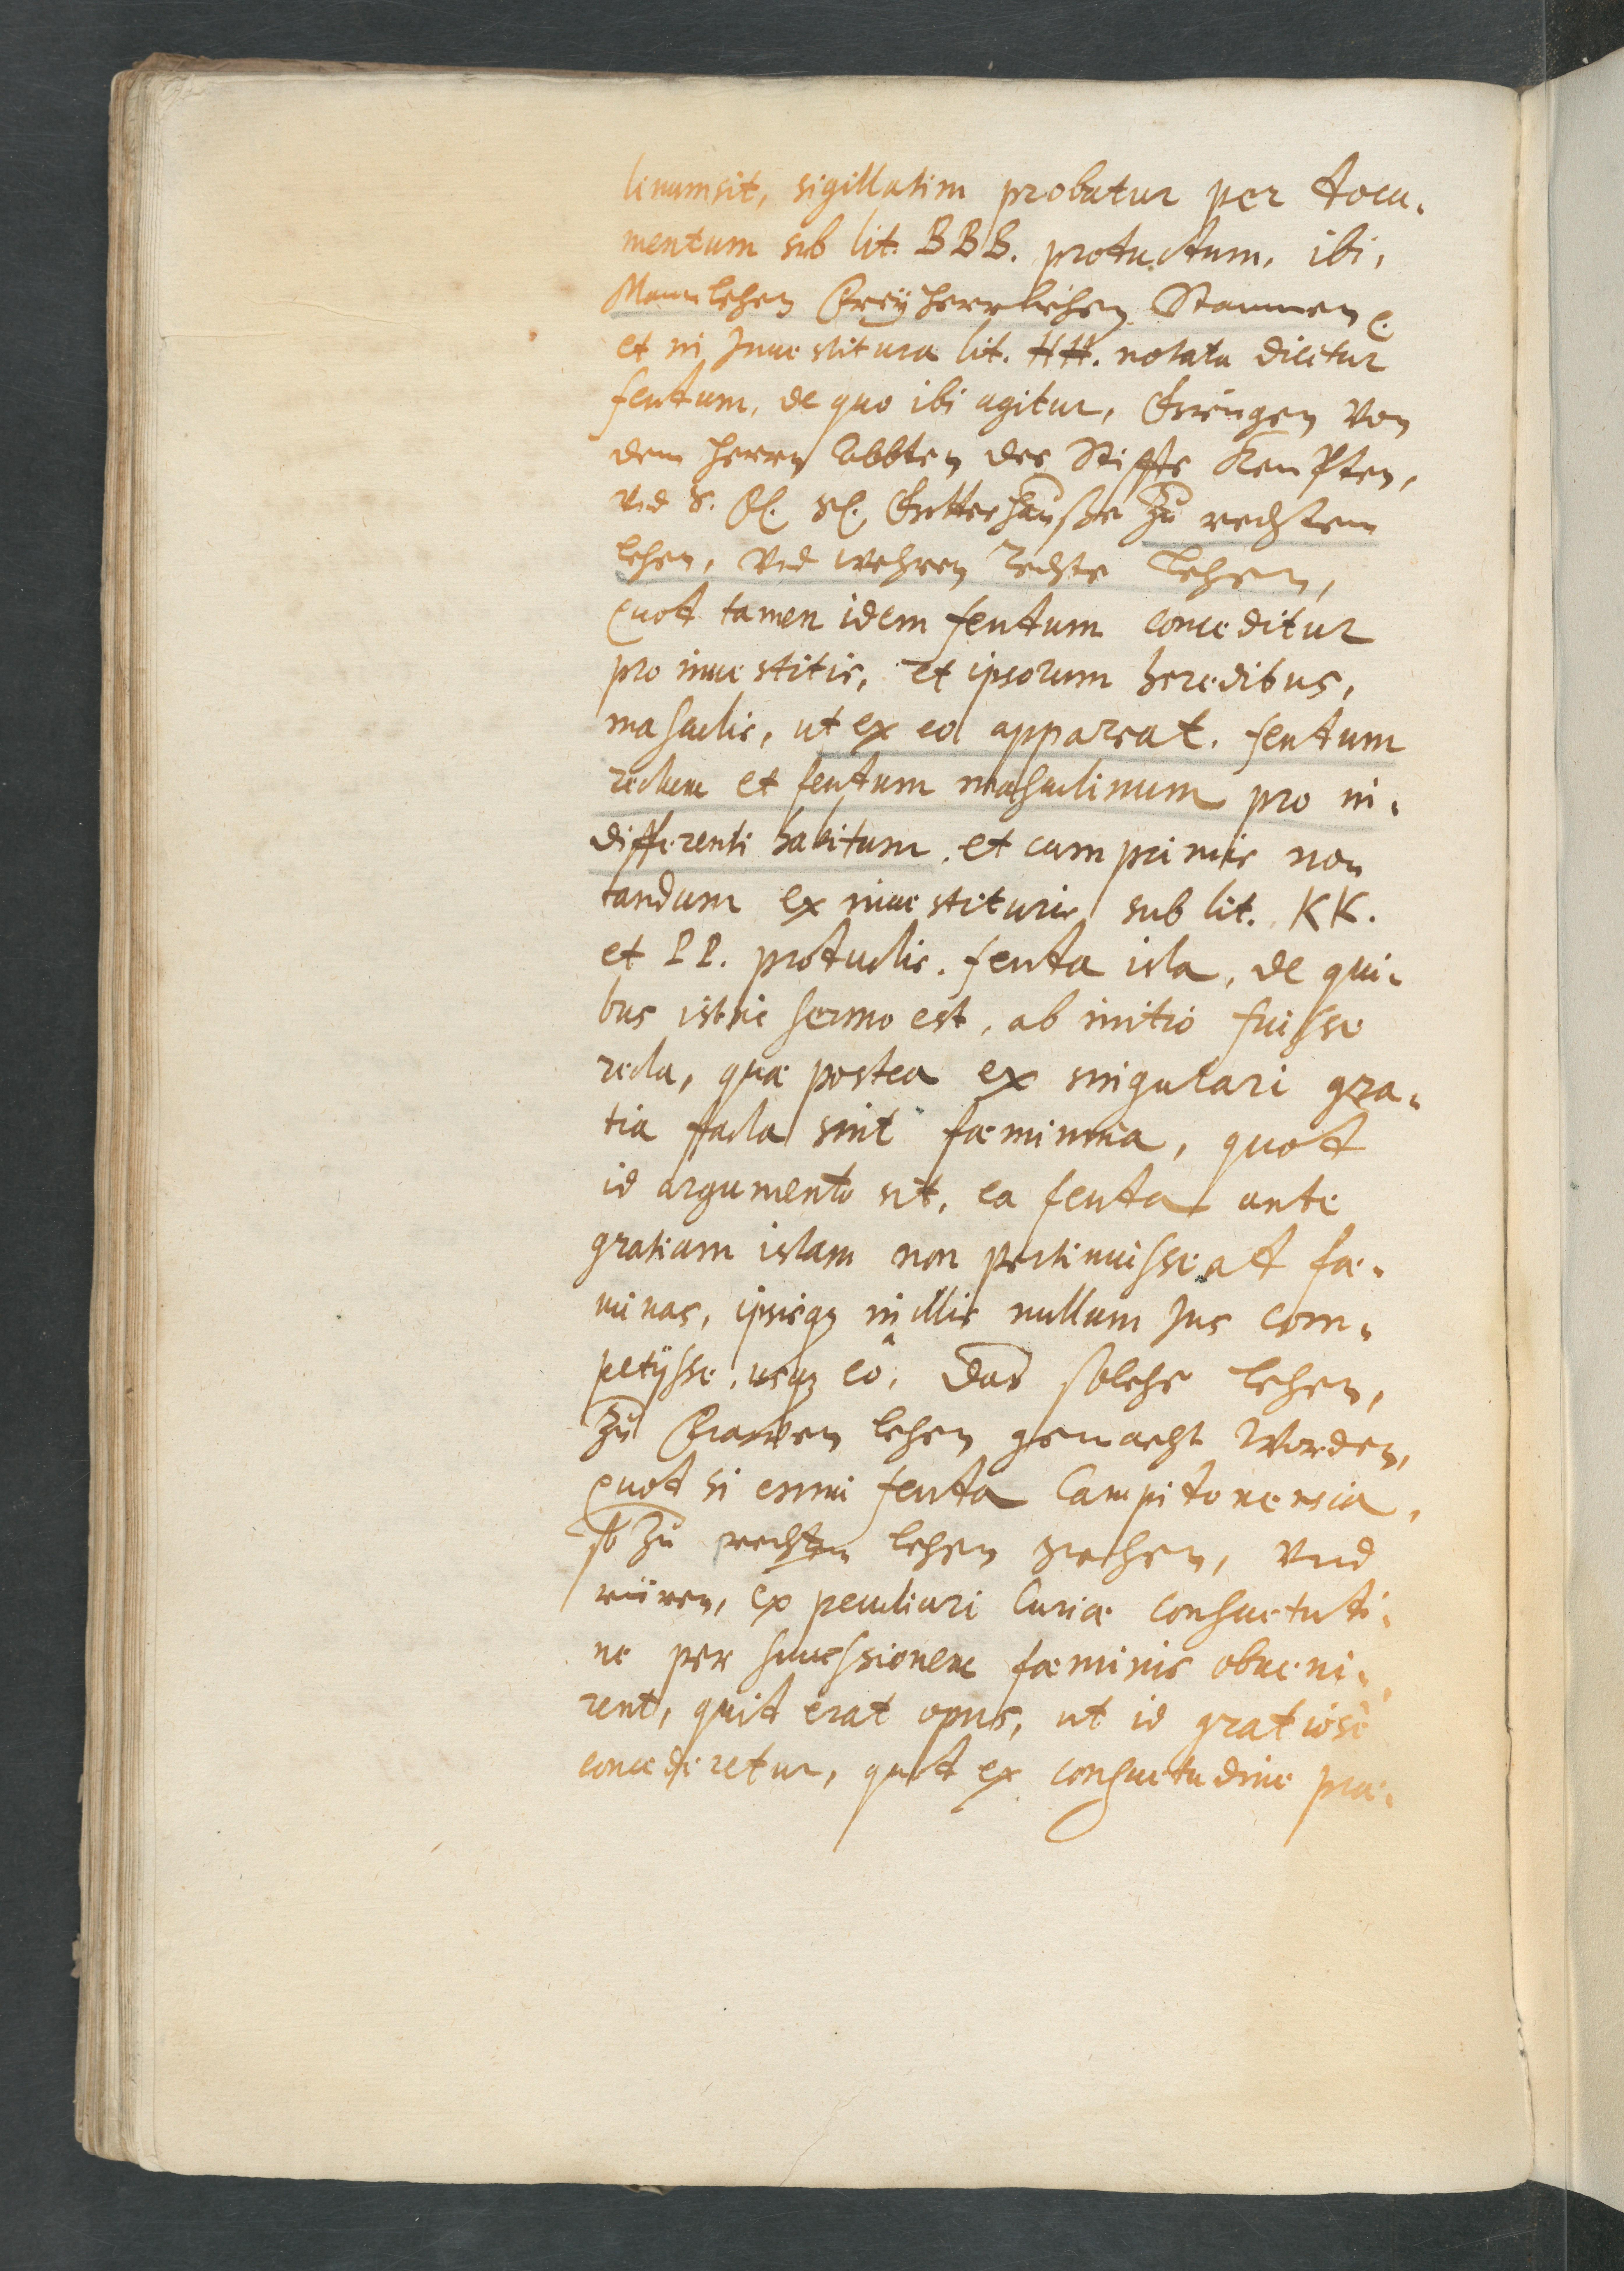 linum sit, sigillatim probatur per docu-
mentum sub lit. BBB. productum, ibi,
Mannlehen Freyherrlichen Stammen etc.
et in Investitura lit. HH. notata dicitur
feudum, de quo ibi agitur, Giengen von
dem herrn Abbten des Stiffts Kempten,
vnd S. Gottes hauße zu rechtem
lehen, vnd wehren rechte Lehen,
quod tamen idem feudum conceditur
pro investitis, et ipsorum heredibus,
masculis, ut ex eo appareat, feudum
rectum et feudum masculinum pro in-
differenti habitum, et cum primis no-
tandum ex investituris sub lit. KK.
et LL. productis, feuda ista, de qui-
bus istic sermo est, ab initio fuisse
recta, quæ postea ex singulari gra-
tia facta sint fæminina, quod
id argumento sit, ea feuda ante
gratiam istam non pertinuisse ad fæ-
minas, ipsisq; in illis nullum Jus com-
petijsse, usq; eò, das solche lehen,
zu Frawen lehen gemacht worden,
quod si enim feuda Campidonensia,
so zu rechten lehen gehen, vnd
rüren, ex peculiari Curiæ consuetudi-
ne per successionem fæminis obveni-
rent, quid erat opus, ut id gratiosè
concederetur, quod ex consuetudine præ-